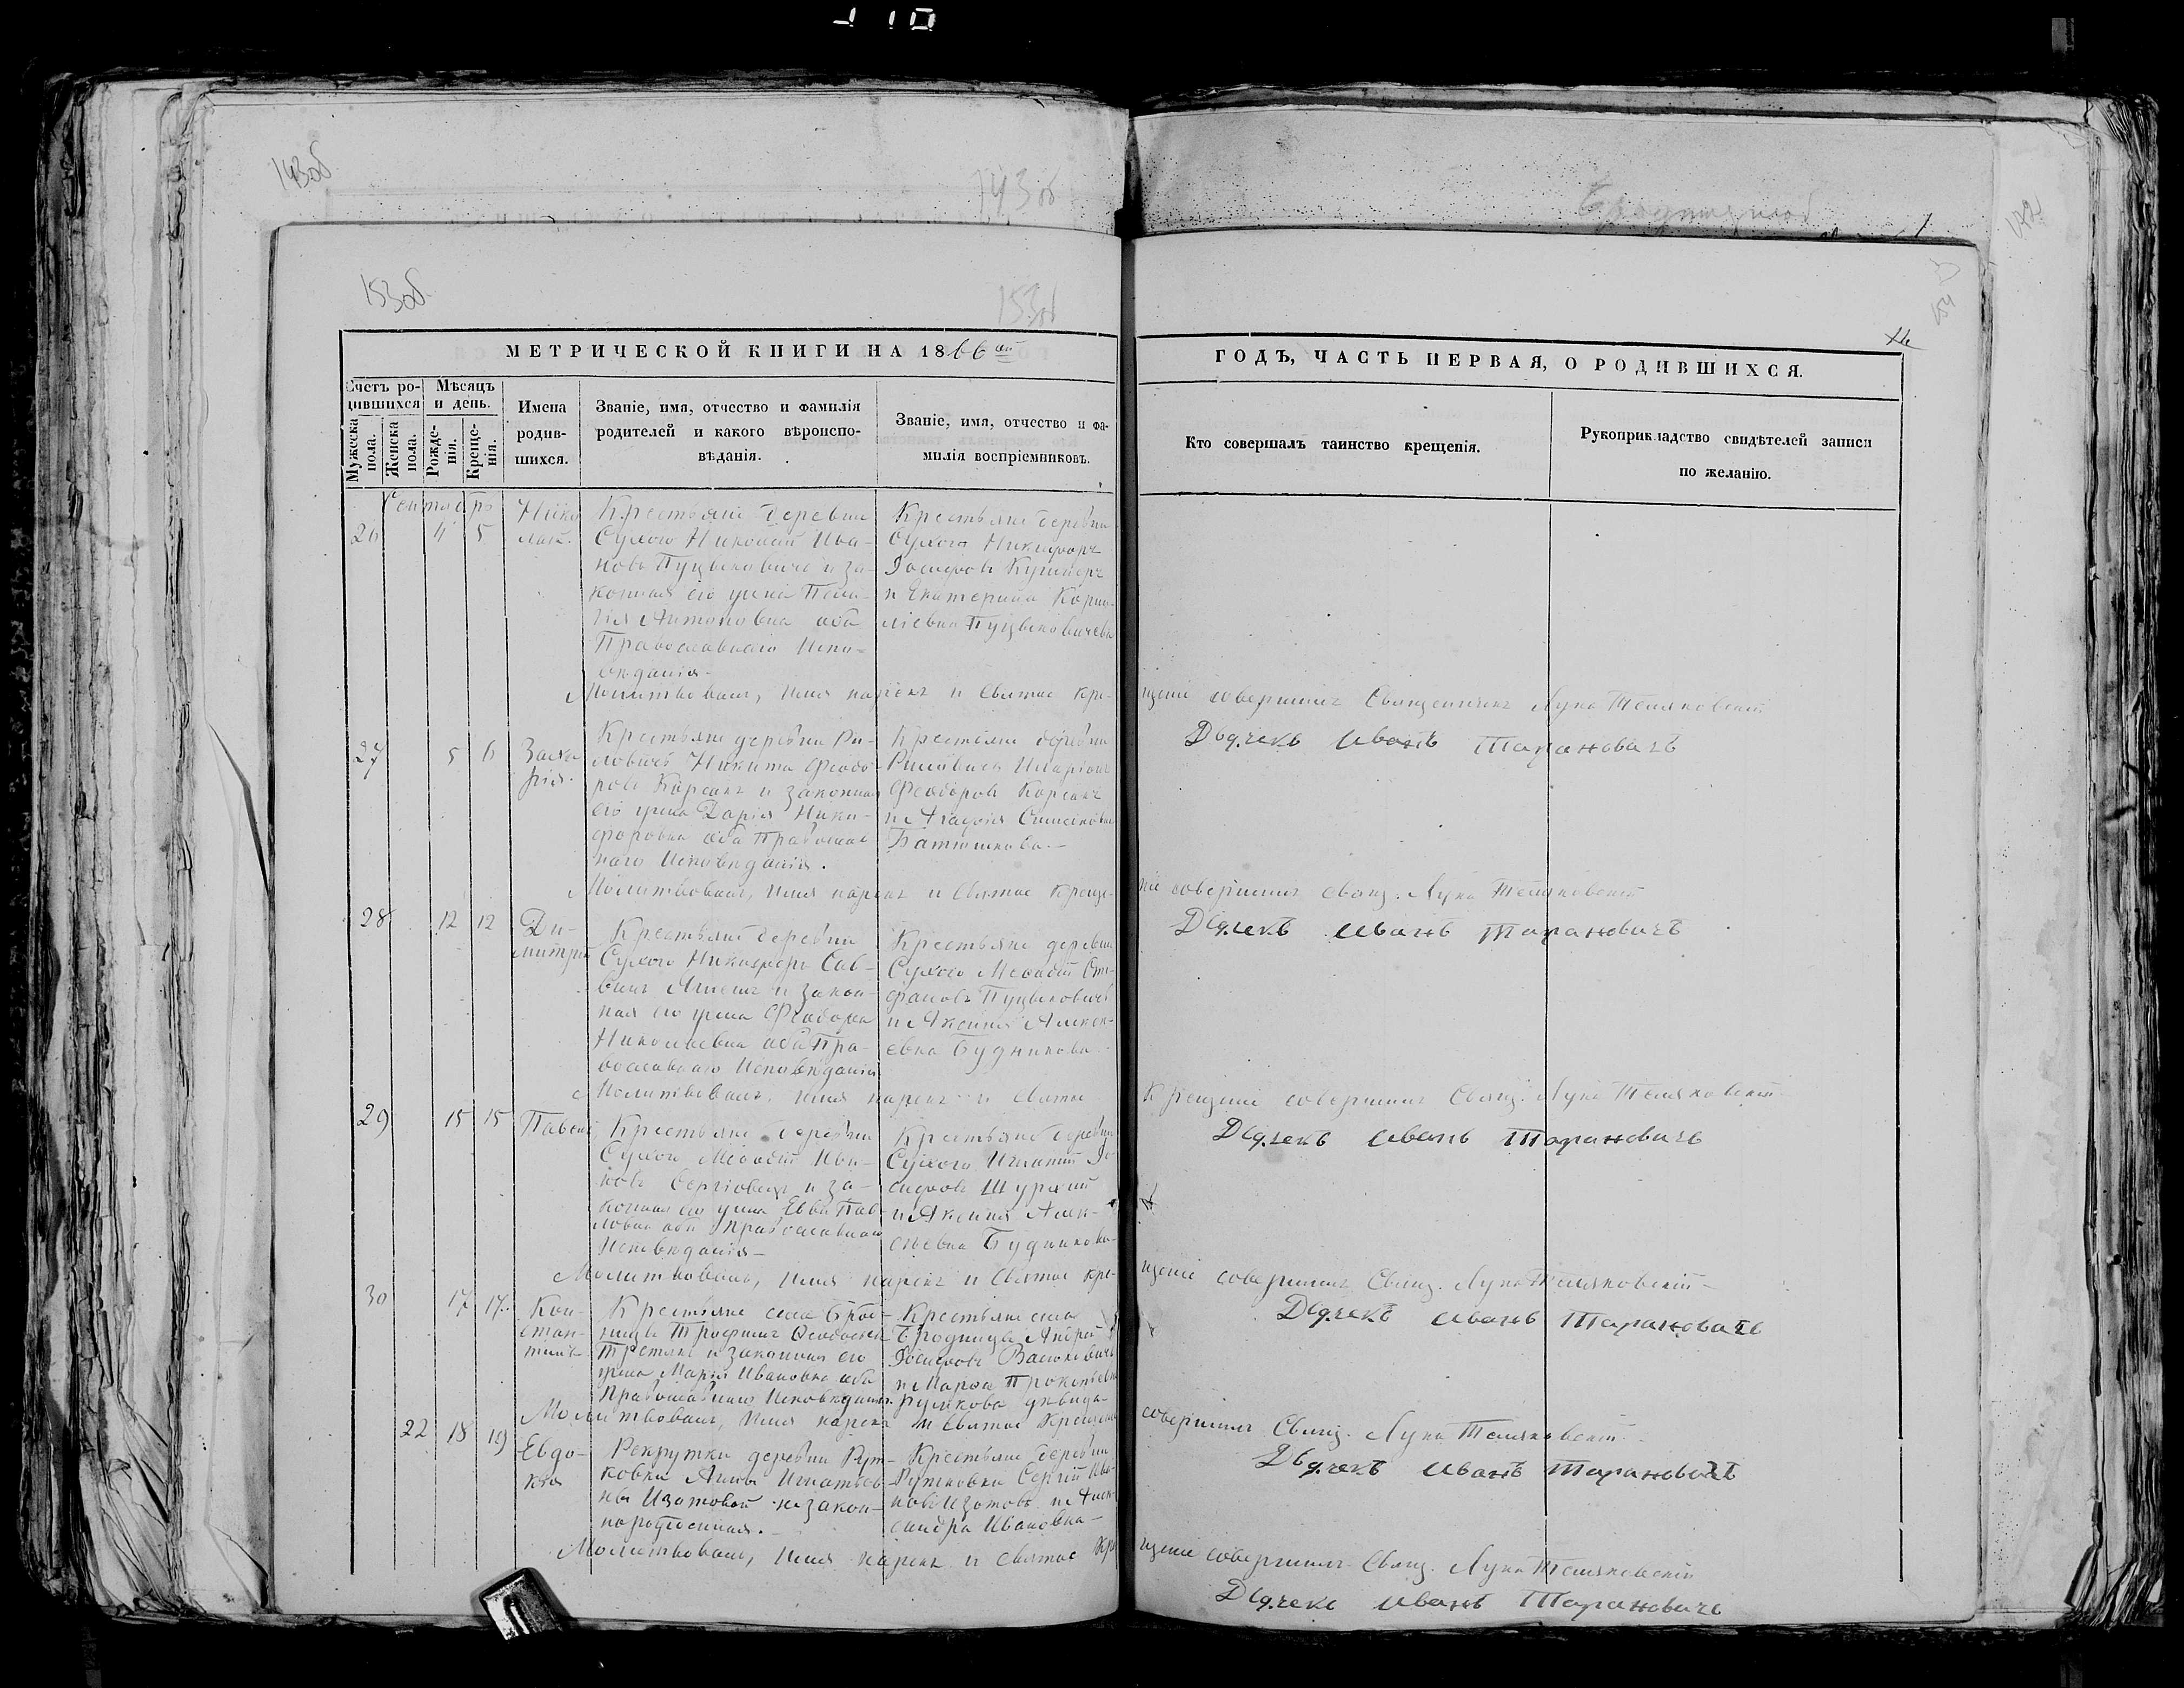 143об
143об
153об
153об
154
МЕТРИЧЕСКОЙ КНИГИ НА 1866 ой
ГОДЪ, ЧАСТЬ ПЕРВАЯ, О РОДИВШИХСЯ.
Счетъ ро-
дившихся
Мужеска
пола.
Женска
пола.
Мѣсяцъ
и день.
Рожде-
нія.
Креще-
нія.
Имена
родив-
шихся.
Званіе, имя, отчество и фамилія
родителей и какого вѣроиспо-
вѣданія.
Званіе, имя, отчество и фа-
милія воспріемниковъ.
Кто совершалъ таинство крещенія.
Рукоприкладство свидѣтелей записи
по желанію.
Сентябрь
26 4 5
Нико
лай.
Крестьяне деревни
Сухого Николай Ива-
новъ Пуцыковичъ и за-
конная его жена Пела-
гія Антоновна оба
Православнаго Испо-
вѣданія.
Крестьяне деревни
Сухого Никифоръ
Іосифовъ Кушнеръ
и Екатерина Корни-
ліевна Пуцыковичева
Молитвовалъ, имя нарекъ и Святое кре-
щеніе совершилъ Священникъ Лука Теляковскій
Дьячекъ Иванъ Тарановичъ
27 5 6
Заха
рія.
Крестьяне деревни Ри-
ловичь Никита Феодо-
ровъ Корсакъ и законная
его жена Дарія Ники-
форовна оба Православ
наго Исповѣданія.
Крестьяне деревни
Иларіонъ
Феодоровъ Корсакъ
и Агафія Симеоновна
Батюшкова.
Молитвовалъ, имя нарекъ и Святое Креще-
ніе совершилъ Свящ. Лука Теляковскій
Дьячекъ Иванъ Тарановичъ
28 12 12
Ди-
митрій
Крестьяне деревни
Сухого Никифоръ Сав-
винъ и закон-
ная его жена Феодора
Николаевна оба Пра-
вославнаго Исповѣданія
Крестьяне деревни
Сухого Меѳодій Сте-
фановъ Пуцыковичъ
и Ксенія Алекс-
евна Будникова
Молитвовалъ, имя нарекъ и Святое
Крещеніе совершилъ Свящ. Лука Теляковскій
Дьячекъ Иванъ Тарановичъ
29 15 15
Павелъ
Крестьяне деревни
Сухого Меѳодій Ива-
новъ и за-
конная его жена Евва Пав-
ловна оба Православнаго
Исповѣданія
Крестьяне деревни
Сухого Игнатій Іо-
сифовъ Шурхай
и Ксенія Алек-
сѣевна Будникова
Молитвовалъ, имя нарекъ и Святое кре-
щеніе совершилъ Свящ. Лука Теляковскій
Дьячекъ Иванъ Тарановичъ
30 17 17
Кон-
стан-
тинъ
Крестьяне села Брод-
ницы Трофимъ Ѳеодосіевъ
Третьякъ и законная его
жена Марія Ивановна оба
Православнаго Исповѣданія
Крестьяне села
Бродницы Андрей
Іосифовъ
и Марѳа Прокопьевна
Молитвовалъ, имя нарекъ и Святое Крещеніе
совершилъ Свящ. Лука Теляковскій
Дьячекъ Иванъ Тарановичъ
22 18 19
Евдо-
кія
Рекрутки деревни Рут-
ковки Анны Игнатьев-
ны Изотовой незакон-
порожденная.
Крестьяне деревни
Рутковки Сергій Ива-
новъ Изотовъ и Алек-
сандра Ивановна
Молитвовалъ, имя нарекъ и Святое Кре
щеніе совершилъ Свящ. Лука Теляковскій
Дьячекъ Иванъ Тарановичъ